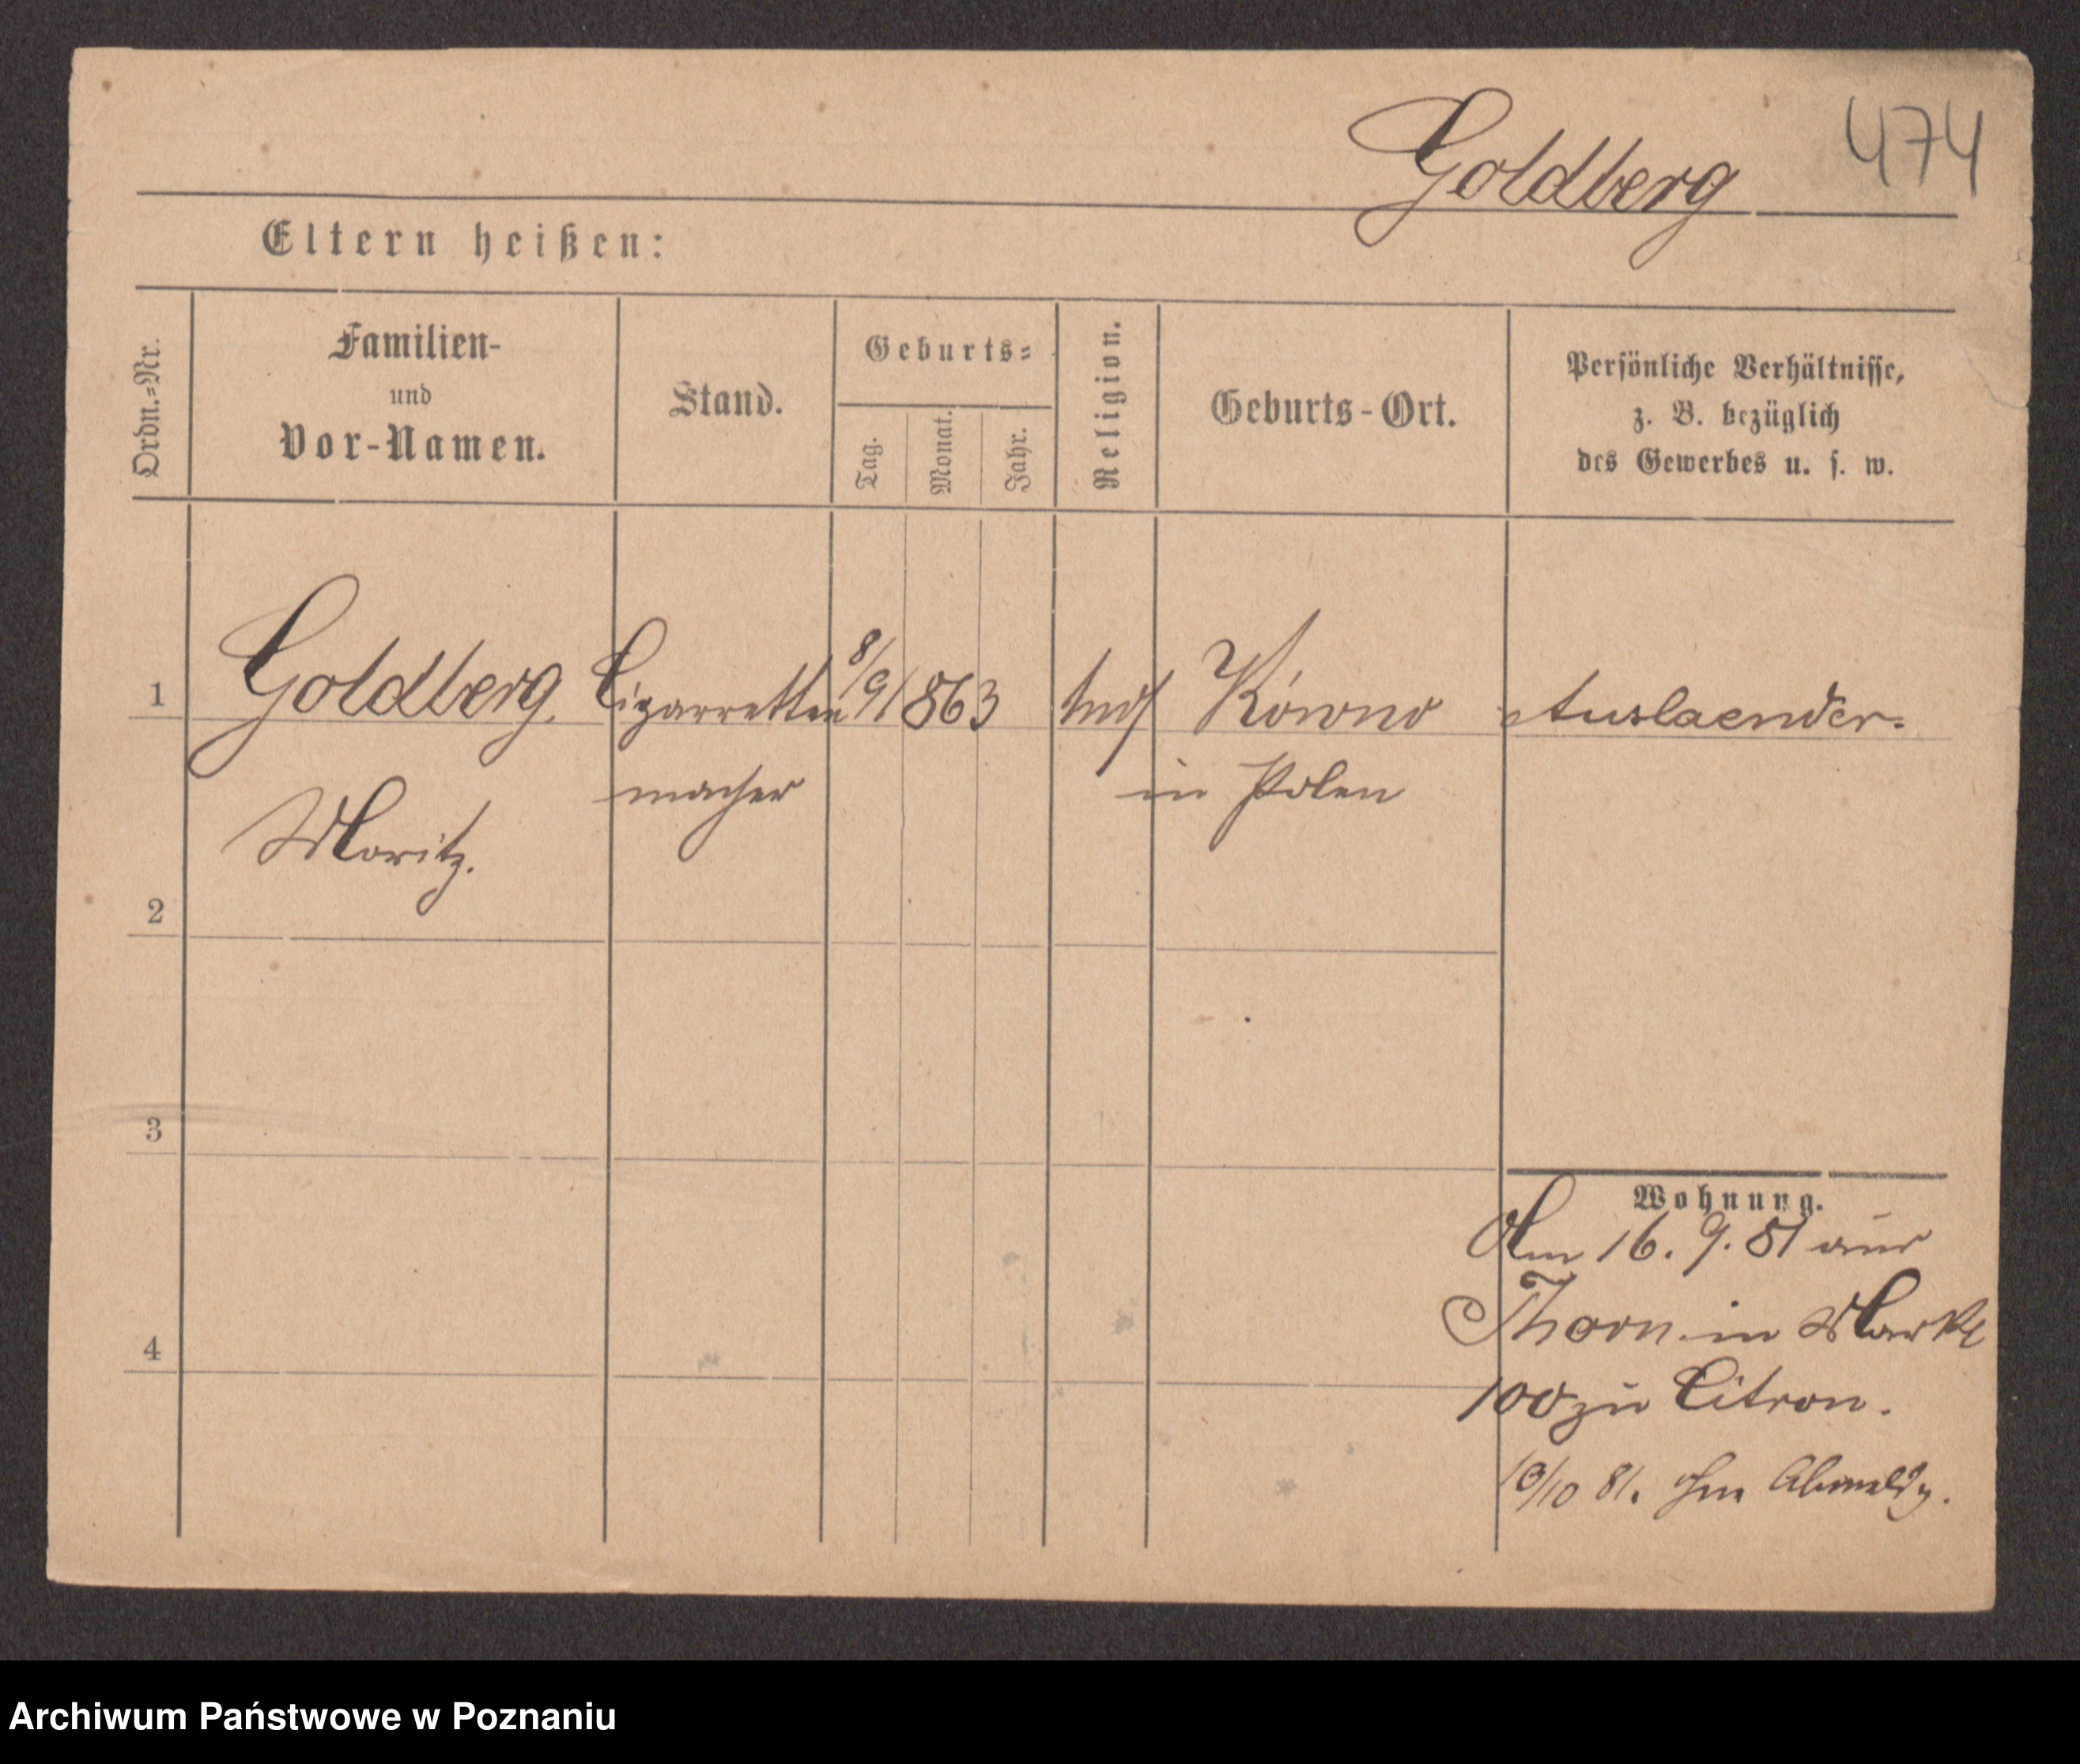 Goldberg 474
Eltern heißen:
Ordn.=Nr.
Familien-
und
Vor-Namen.
Stand.
Geburts=
Tag.
Monat.
Jahr.
Religion.
Geburts-Ort.
Persönliche Verhältnisse,
z. B. bezüglich
des Gewerbes u. s. w.
1 Goldberg. Cigarretten 8/9 1863 Kówno Auslaender.
macher in Polen
Moritz.
2
3
4
Wohnung.
Am 16. 9. 81 aus
Thorn in Markt
100 zu Citron.
10/10 81. ohne Abmeldg.
Archiwum Państwowe w Poznaniu